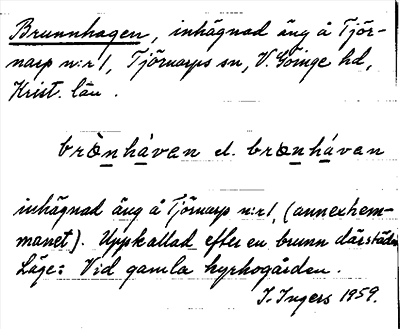 Brunnhagen, inhägnad äng å Tjör-
narp n:r 1, Tjörnarps sn, V. Göinge hd,
Krist. län.
brònhávan el. brònhávan
inhägnad äng å Tjörnarp n:r 1, (annexhem-
manet). Uppkallad efter en brunn därstädes
Läge: Vid gamla kyrkogården.
I. Ingers 1959.